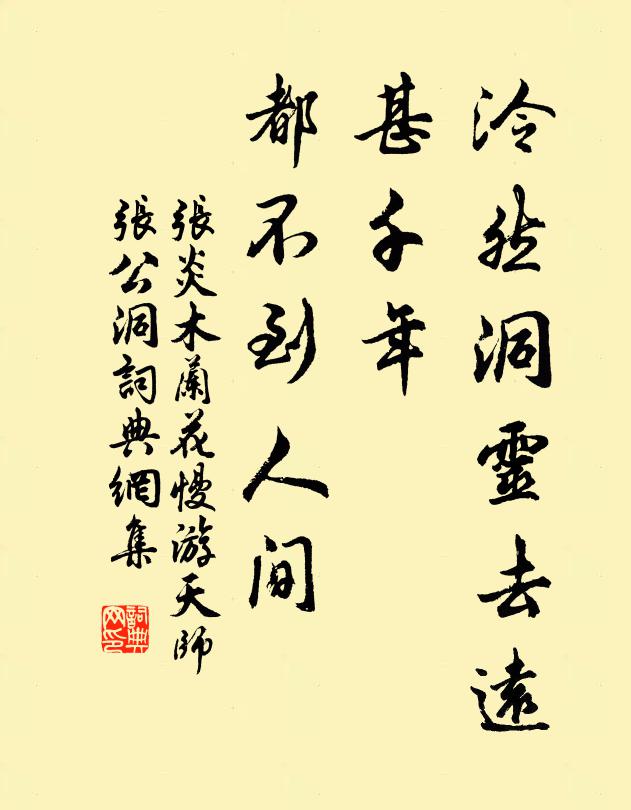 泠然洞靈去遠
甚千年
都不到人間
張炎木蘭花慢游天師
張公洞詞典網集
詞典
网印